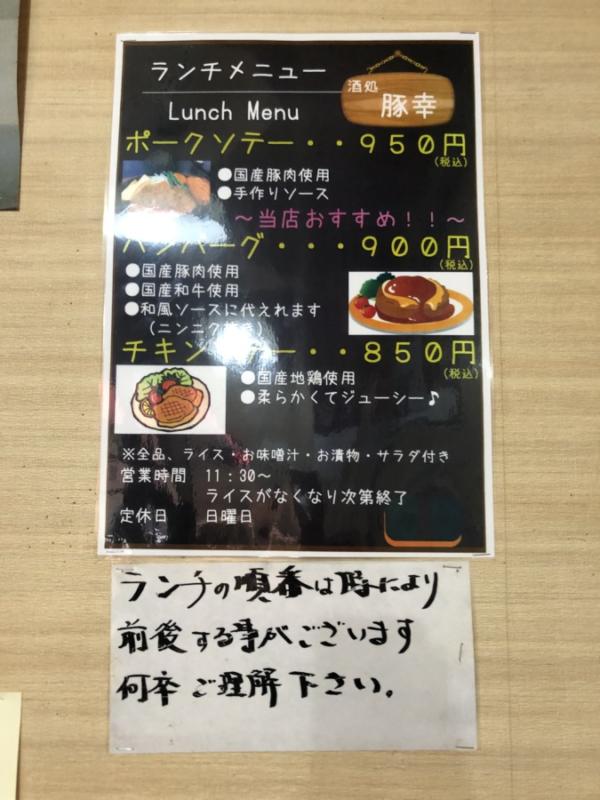 ランチメニュー
酒処
豚幸
Lunch Menu
ポークソテー・・950円
(税込)
●国産豚肉使用
●手作りソース
～当店おすすめ！！～
ハンバーグ・・・900円
(税込)
●国産豚肉使用
●国産和牛使用
●和風ソースに代えれます
(ニンニク
チキンソテー・・850円
(税込)
●国産地鶏使用
●柔らかくてジューシー♪
※全品、ライス・お味噌汁・お漬物・サラダ付き
営業時間 11：30～
ライスがなくなり次第終了
定休日 日曜日
ランチの順番は時により
前後する事がございます
何卒ご理解下さい。